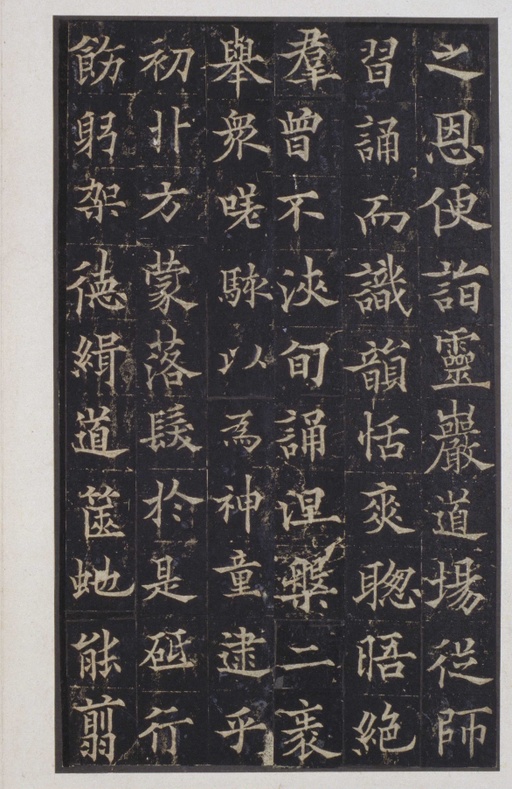 之恩便詣靈巖道場從師
習誦而識韻恬爽聦晤絶
羣曾不浹旬誦涅槃二袠
舉衆嗟駴以為神童逮乎
初丱方蒙落髮於是砥行
飭躬架徳緝道篋虵能翦